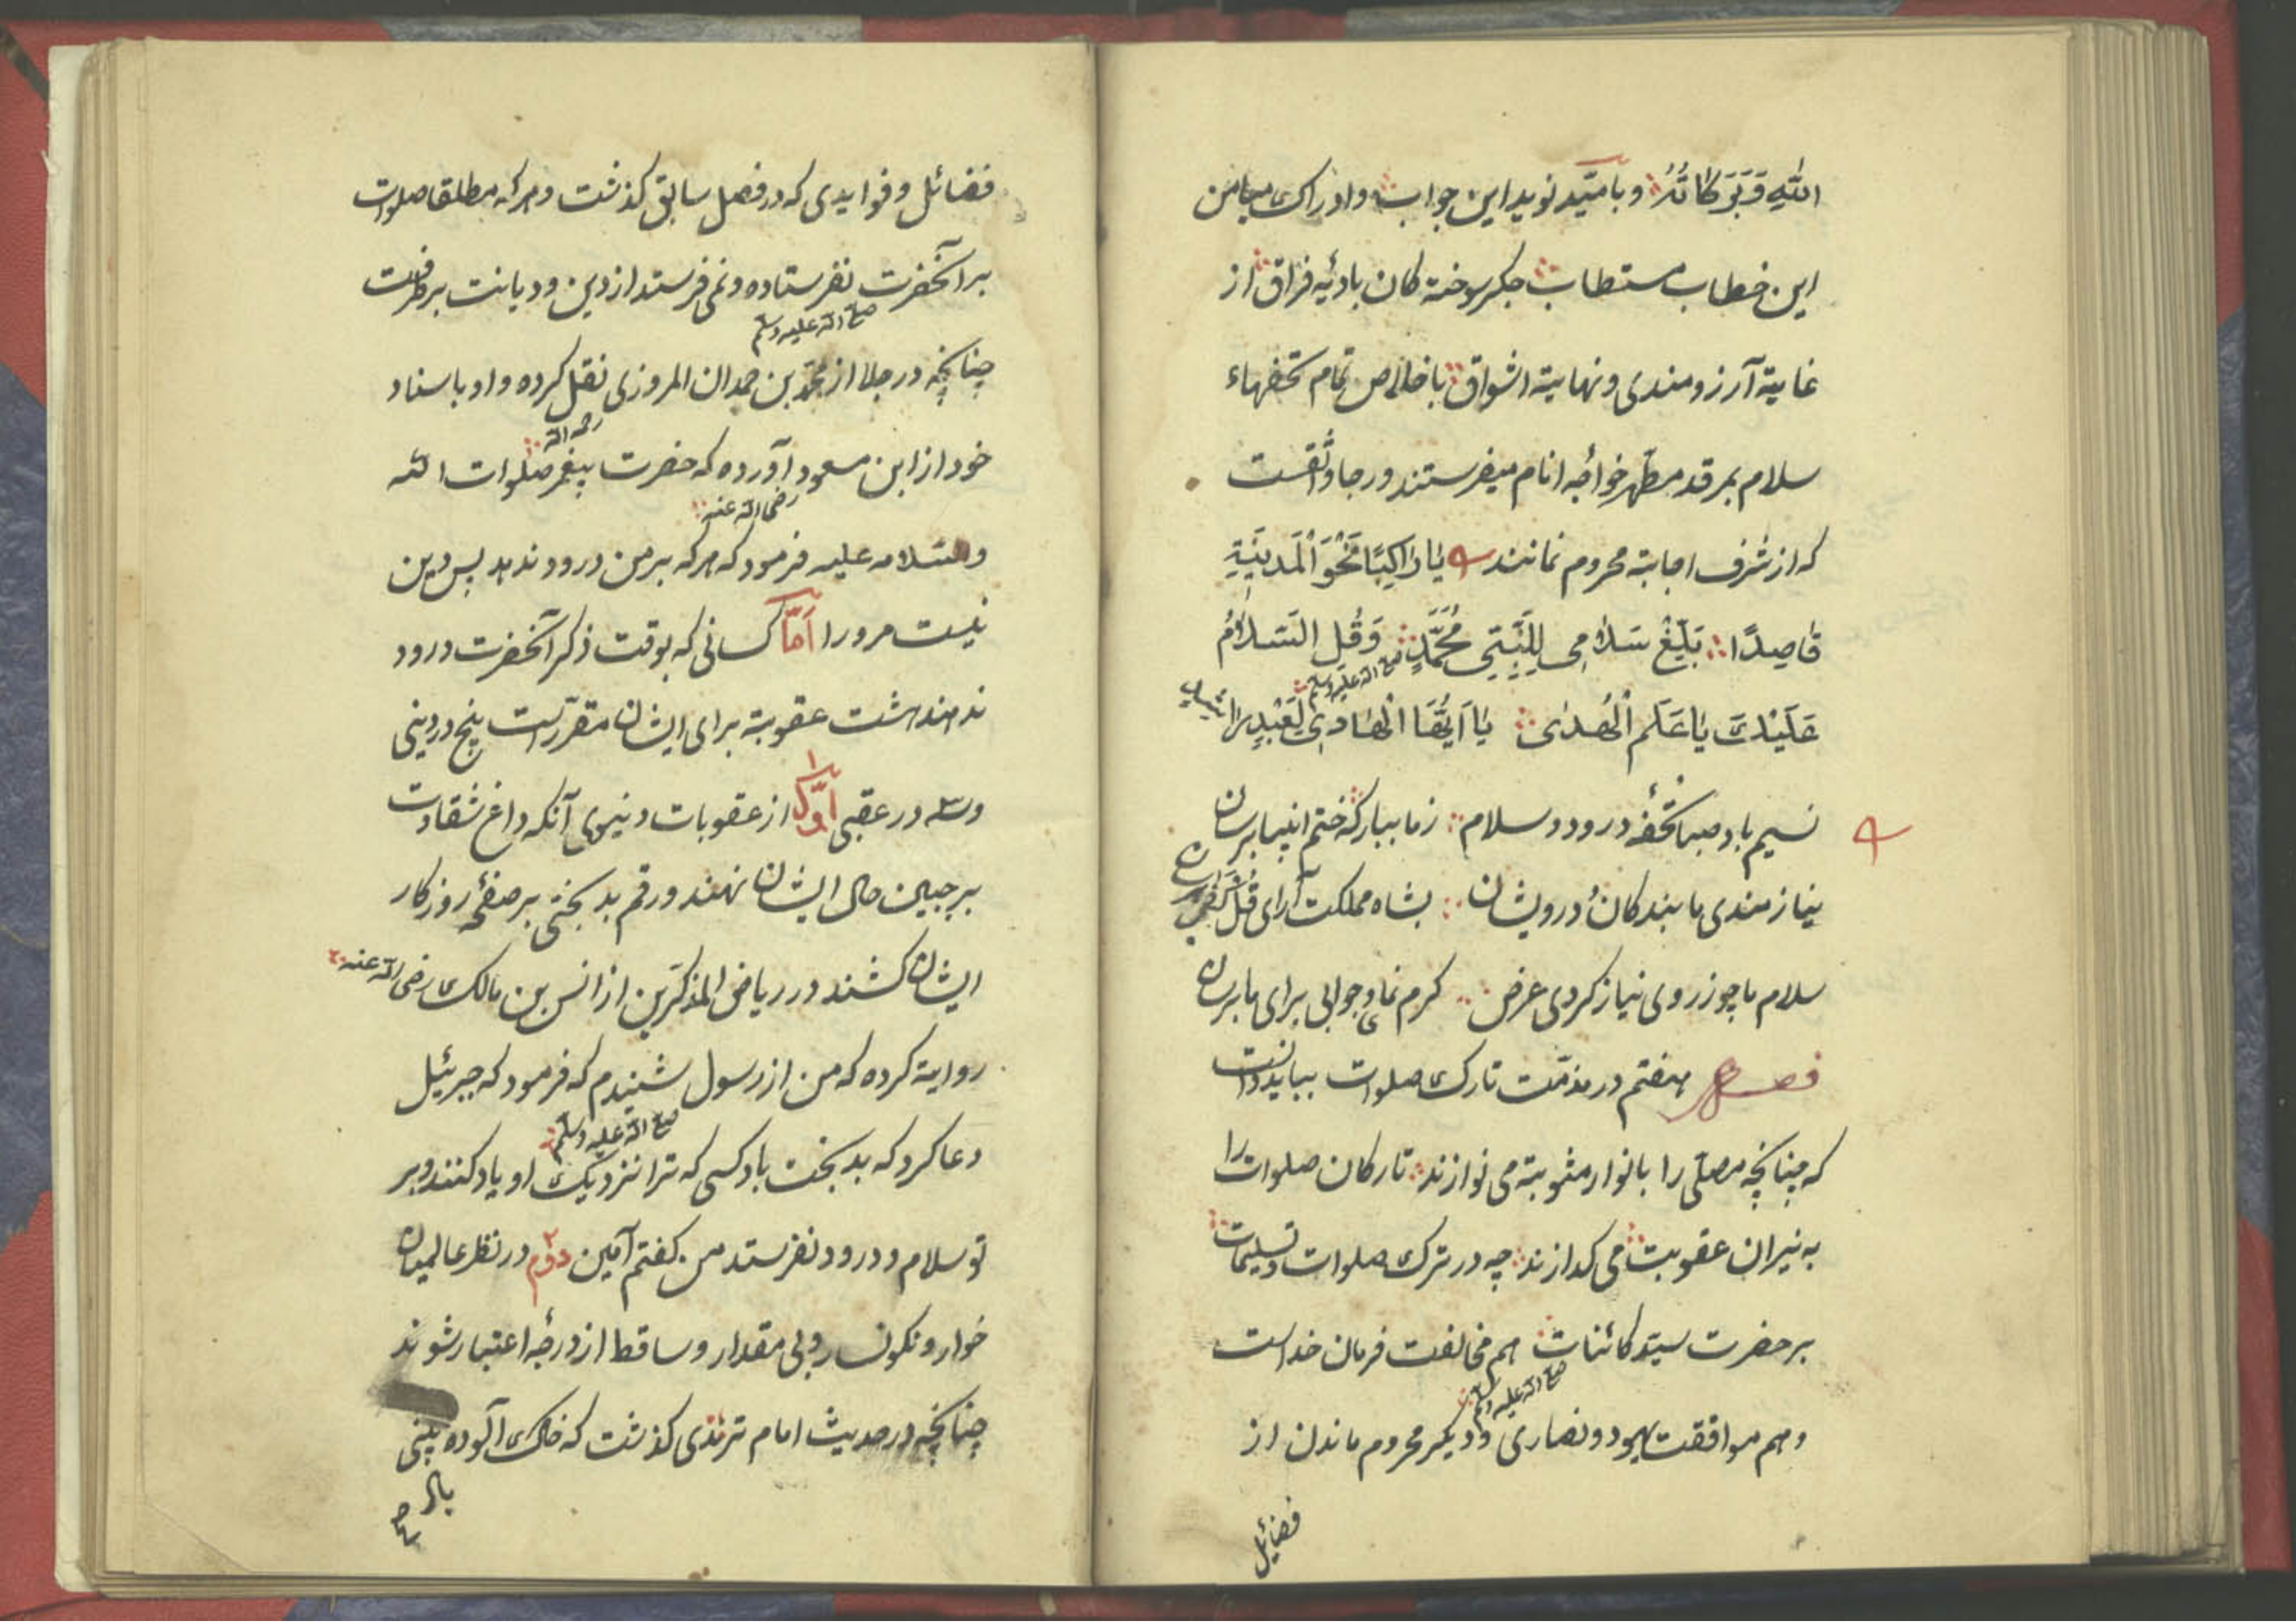 اللّٰهِ وَبَرَكَاتُهُ و بامّید نوید این جواب و ادراک میامن
این خطاب مستطاب جکر سوخته کان بادئیه فراق از
غایة آرزومندی و نهایة اشواق باخلاص تمام تحفهاء
سلام بمرقد مطهر خواجٔه انام میفرستند و رجا واثقست
که از شرف اجابة محروم نمانند يَا رَاكِبًا نَحْوَ الْمَدِينَةِ
قَاصِدًا بَلِّغْ سَلَامِى لِلنَّبِيِّ مُحَمَّدٍ وَقُلِ السَّلَامُ
صلى الله عليه وسلم
عَلَيْكَ يَا عَلَم الْهُدٰى يَا اَيُّهَا الْهَادِى لِعَبْدِ
نسیم باد صبا تحفهٔ درود و سلام ز ما ببارکه ختم انبیا برسان
نیازمندی ما بندکان درویشان بشاه مملکت آرای
سلام ما چو ز روی نیاز کردی عرض کرم نمای و جوابی برای ما برسان
فصل هفتم در مذمّت تارک صلوات بباید دانست
که چنانچه مصلّی را بانوار مثوبة می نوازند تارکان صلوات را
به نیران عقوبت می کدازند چه در ترک صلوات و تسلیمات
بر حضرت سیّد کائنات هم مخالفت فرمان خداست
صلى الله عليه وسلم
و هم موافقت یهود و نصاری و دیکر محروم ماندن از
فضائل
فضائل و فوایدی که در فصل سابق کذشت و هرکه مطلقا صلوات
بر آنحضرت نفرستاده و نمی فرستد از دین و دیانت برطرفست
صلى الله عليه وسلم
چنانچه در جلا از محمّد بن حمدان المروزی نقل کرده و او باسناد
رحمه الله
خود از ابن مسعود آورده که حضرت پیغمر صلوات الله
رضى الله عنه
والسلامه علیه فرمود که هرکه بر من درود ندهد پس دین
نیست مرورا امّا کسانی که بوقت ذکر آنحضرت درود
ندهند هشت عقوبة برای ایشان مقرّرست پنج در دینی
وسه در عقبی اوّل از عقوبات دنیوی آنکه داغ شقاوت
بر جبین حال ایشان نهند و رقم بدبختی بر صفحٔه روزکار
ایشان کشند در ریاض المذکّرین از انس بن مالک رضى الله عنه
روایة کرده که من از رسول شنیدم که فرمود که جبرئیل
صلى الله عليه وسلم
دعا کرد که بدبخت باد کسی که ترا نزدیک او یاد کنند و بر
تو سلام و درود نفرستد من کفتم آمین دوّم در نظر عالمیان
خوار و نکونسار و بی مقدار و ساقط از درجٔه اعتبار شوند
چنانچه در حدیث امام ترمذی کذشت که خاک آلوده بینی